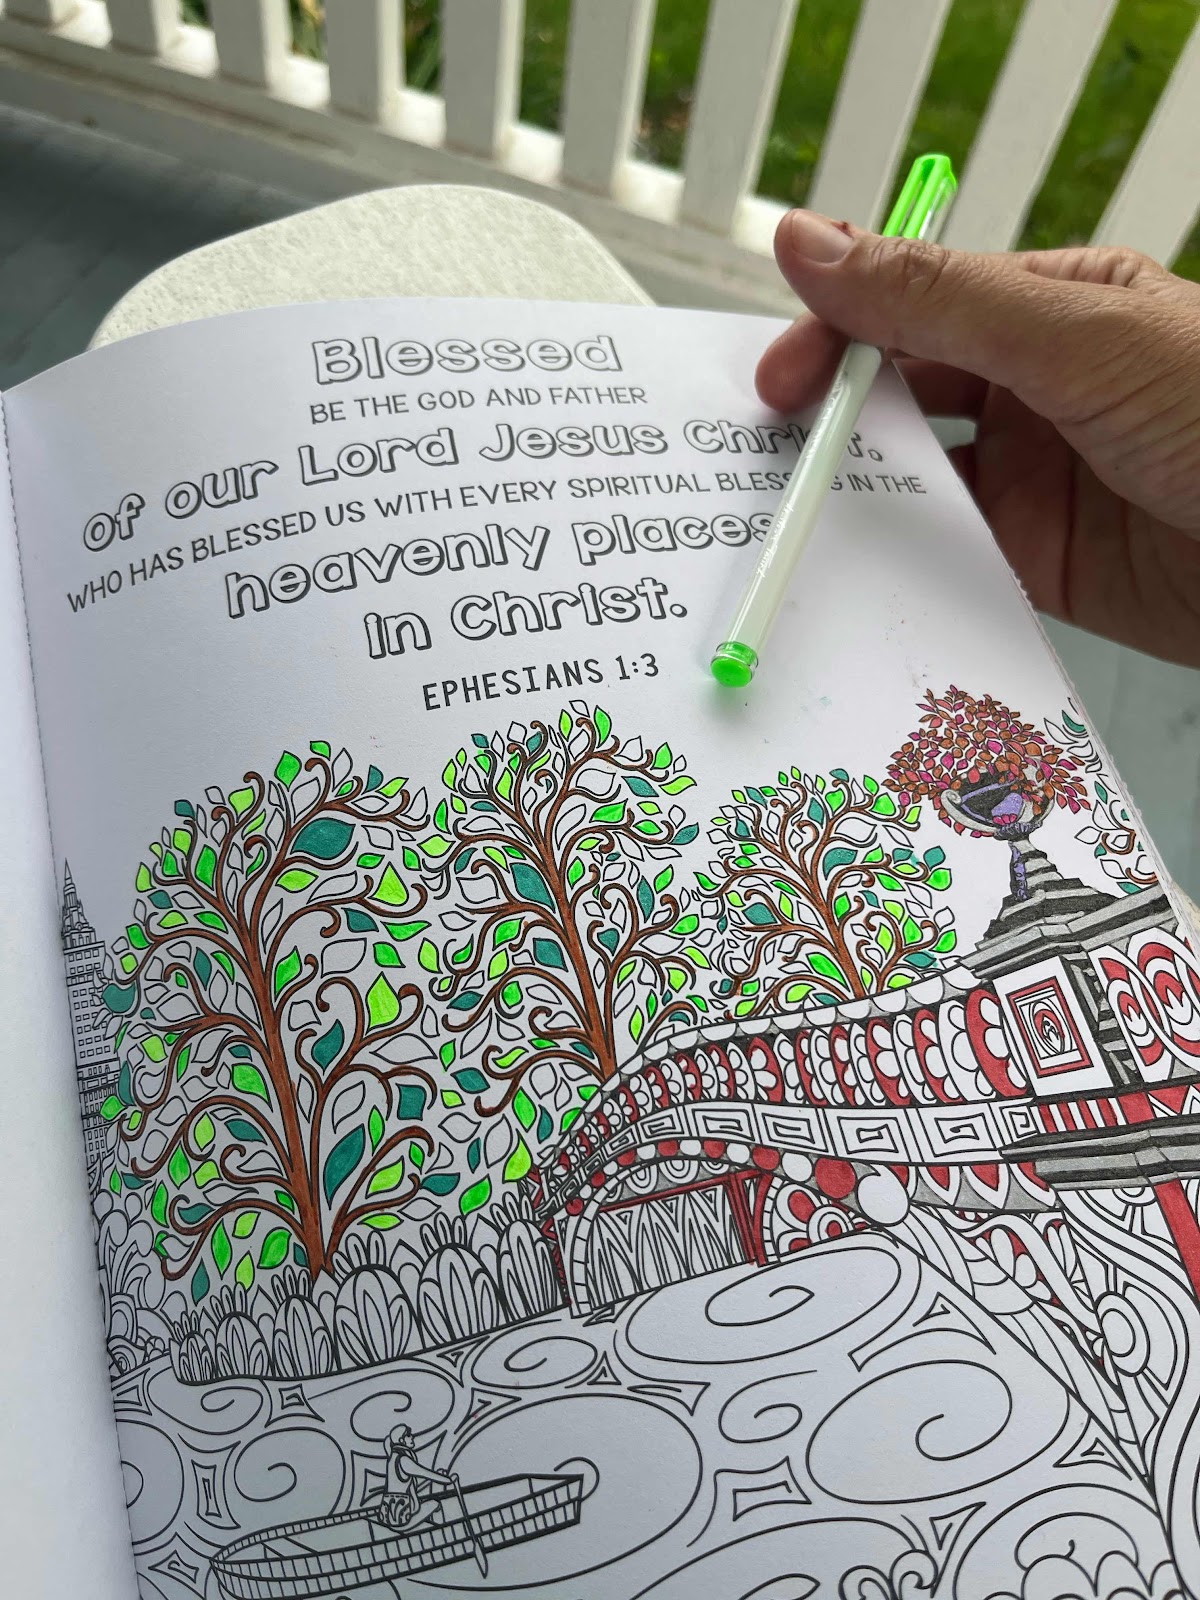 Blessed
BE THE GOD AND FATHER
of our Lord Jesus Christ.
WHO HAS BLESSED US WITH EVERY SPIRITUAL BLESSING IN THE
heavenly places
in Christ.
EPHESIANS 1:3